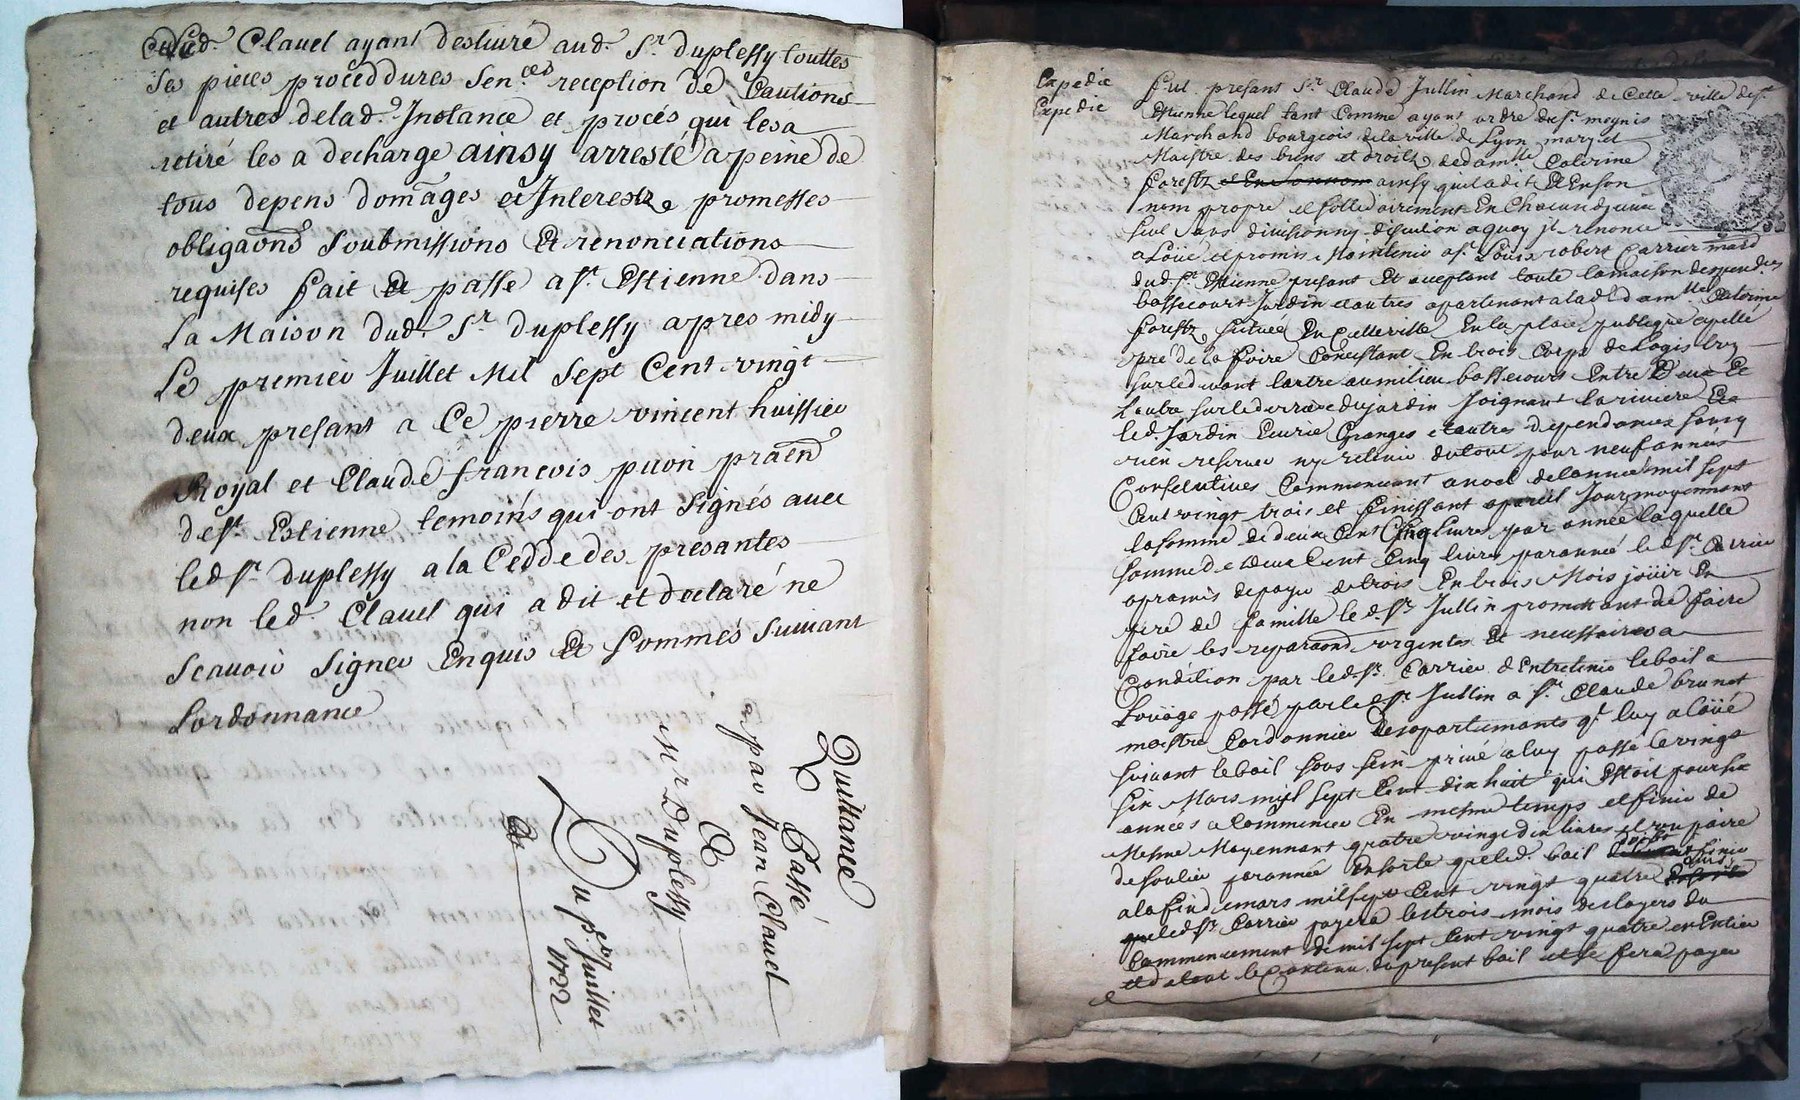 Clavel ayant deslivré aud. Sr. duplessy touttes
ses pieces proceddures Sen.ces reception de Cautions
et autres delad. Instance et procés qui lesa
retiré les a decharge ainsy arresté a peine de
tous depens domages et Interestz promesses
obligaons soubmissions Et renonciations
requises fait Et passe a St. Estienne dans
La Maison dud. Sr duplessy apres midy
Le premier Juillet Mil Sept Cent vingt
deux presant a Ce pierre vincent huissier
Royal et Claude françois puon praen
de St. Estienne temoins qui ont signés avec
led Sr. duplessy a la Cedde des presantes
non led. Clavel qui a dit et declaré ne
scavoir signer Enquis Et sommés suivant
Lordonnance
Quittance
Passé
par Jean Clavel
A
Mr Duplessy
Du pr Juillet
1722
Expedie
Expedie
fut presant Sr. Claude Jullin Marchand de Cette ville de St.
Estienne lequel tant Comme ayant ordre du Sr. meynis
Marchand bourgeois dela ville de Lyon mary et
Maistre des biens et droits de dam.lle Caterine
forestz ainsy quil a dit Et En son
nom propre et sollidairement En Chacun
seul sans division ny a quoy jl renonce
a Loüé et promis Maintenir a Sr. Louis robert Carrier mard
dud St. Estienne presant Et aceptant toute la maison
bassecourt Jardin et autres apartenant a lad dam.lle Caterine
forestz scituée En Cette ville En la place publique apellé
pré de la foire Consistant En trois Corps de Logis
sur le devant lautre au milieu bassecours Entre Deux Et
Lautre sur le derriere du jardin Joignant la riviere
led. Jardin Ecurie Granges et autres dependances
rien reserver ny retenir du tout pour neuf années
Consecutives Commencant a noel de lannée mil sept
Cent vingt trois et finissant a pareil Jour moyennant
la somme de deux Cent Cinq livres par année laquelle
somme de deux Cent Cinq livres par année led Sr. Carrier
a promis de payer de trois En trois Mois joüir En
pere de famille led Sr. Jullin promettant de faire
faire les reparaons urgentes Et necessaires a
Condition par led Sr. Carrier d'Entretenir le bail a
Loüage passé par led Sr. Jullin a Sr. Claude brunet
maistre Cordonnier des apartemants qt. luy a Loüé
suivant le bail sous sein privé a luy passé le vingt
six Mars mil sept Cent dix huit qui Estoit pour six
années a Commencer En mesme temps et finir de
Mesme Moyennant quatre vingt dix livres et un paire
de soulier par année En sorte que led. bail finir
a la fin de mars mil sept Cent vingt quatre
que led Sr. Carrier payera les trois mois des loyers du
Commencement de mil sept Cent vingt quatre en Entier
le Contenu du present bail et se fera payer